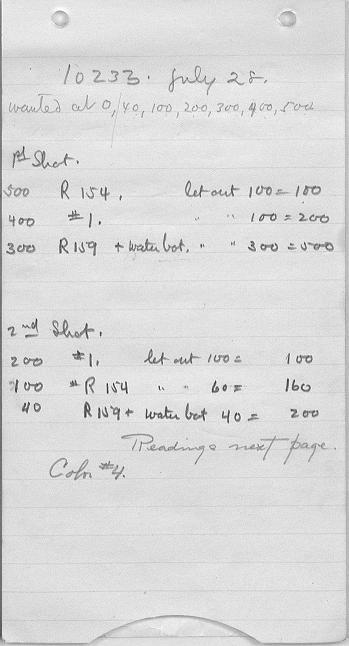 10233. July 28.
wanted at 0, 40, 100, 200, 300, 400, 500
1st Shot.
500 R 154. let out 100 = 100
400 #1. " " 100 = 200
300 R 159 + water bot. " " 300 = 500
2nd Shot.
200 #1. let out 100 = 100
100 " R 154 " " 60 = 160
40 R 159 + water bot 40 = 200
Readings next page.
Color #4.